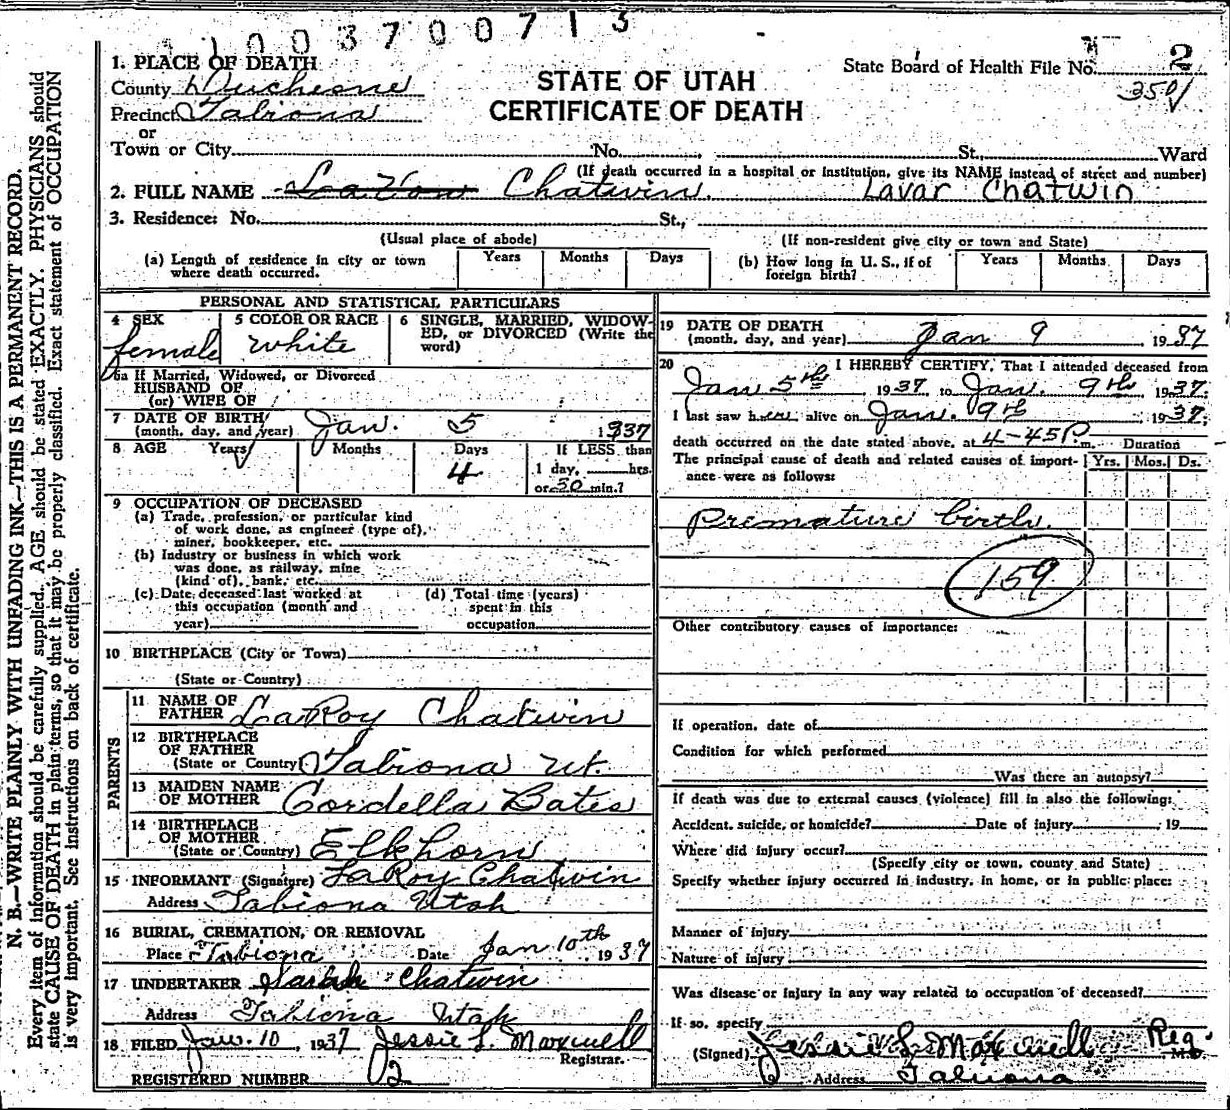 1003700713
1. PLACE OF DEATH
County Duchesne
Precinct Tabiona
or
Town or City No. St., Ward
STATE OF UTAH
CERTIFICATE OF DEATH
State Board of Health File No. 2
350
(If death occurred in a hospital or institution, give its NAME instead of street and number)
2. FULL NAME LaVon Chatwin. Lavar Chatwin
3. Residence: No. St.,
(Usual place of abode) (If non-resident give city or town and State)
(a) Length of residence in city or town where death occurred. Years Months Days
(b) How long in U. S., if of foreign birth? Years Months Days
PERSONAL AND STATISTICAL PARTICULARS
4 SEX
female
5 COLOR OR RACE
white
6 SINGLE, MARRIED, WIDOW-
ED, or DIVORCED (Write the
word)
6a If Married, Widowed, or Divorced
HUSBAND OF
(or) WIFE OF
7 DATE OF BIRTH
(month, day, and year) Jan. 5 1937
8 AGE Years Months Days If LESS than
4 1 day, hrs.
or 30 min.?
9 OCCUPATION OF DECEASED
(a) Trade, profession, or particular kind
of work done, as engineer (type of),
miner, bookkeeper, etc.
(b) Industry or business in which work
was done, as railway, mine
(kind of), bank, etc.
(c) Date deceased last worked at
this occupation (month and
year)
(d) Total time (years)
spent in this
occupation
10 BIRTHPLACE (City or Town)
(State or Country)
PARENTS
11 NAME OF
FATHER LaRoy Chatwin
12 BIRTHPLACE
OF FATHER
(State or Country) Tabiona Ut.
13 MAIDEN NAME
OF MOTHER Cordella Bates
14 BIRTHPLACE
OF MOTHER
(State or Country) Elkhorn
15 INFORMANT (Signature) LaRoy Chatwin
Address Tabiona Utah
16 BURIAL, CREMATION, OR REMOVAL
Place Tabiona Date Jan 10th 1937
17 UNDERTAKER Chatwin
Address Tabiona Utah
18 FILED Jan. 10, 1937 Jessie L. Maxwell
Registrar.
REGISTERED NUMBER 2
19 DATE OF DEATH
(month, day, and year) Jan 9, 1937
20 I HEREBY CERTIFY, That I attended deceased from
Jan 5th, 1937, to Jan. 9th, 1937;
I last saw her alive on Jan. 9th, 1937;
death occurred on the date stated above, at 4-45 P. m. Duration
The principal cause of death and related causes of import- Yrs. Mos. Ds.
ance were as follows:
Premature birth.
159
Other contributory causes of importance:
If operation, date of
Condition for which performed
Was there an autopsy?
If death was due to external causes (violence) fill in also the following:
Accident, suicide, or homicide? Date of injury , 19
Where did injury occur?
(Specify city or town, county and State)
Specify whether injury occurred in industry, in home, or in public place:
Manner of injury
Nature of injury
Was disease or injury in any way related to occupation of deceased?
If so, specify
(Signed) Jessie L. Maxwell Reg. M.D.
Address Tabiona
N. B.—WRITE PLAINLY WITH UNFADING INK—THIS IS A PERMANENT RECORD.
Every item of information should be carefully supplied. AGE should be stated EXACTLY. PHYSICIANS should
state CAUSE OF DEATH in plain terms, so that it may be properly classified. Exact statement of OCCUPATION
is very important. See instructions on back of certificate.